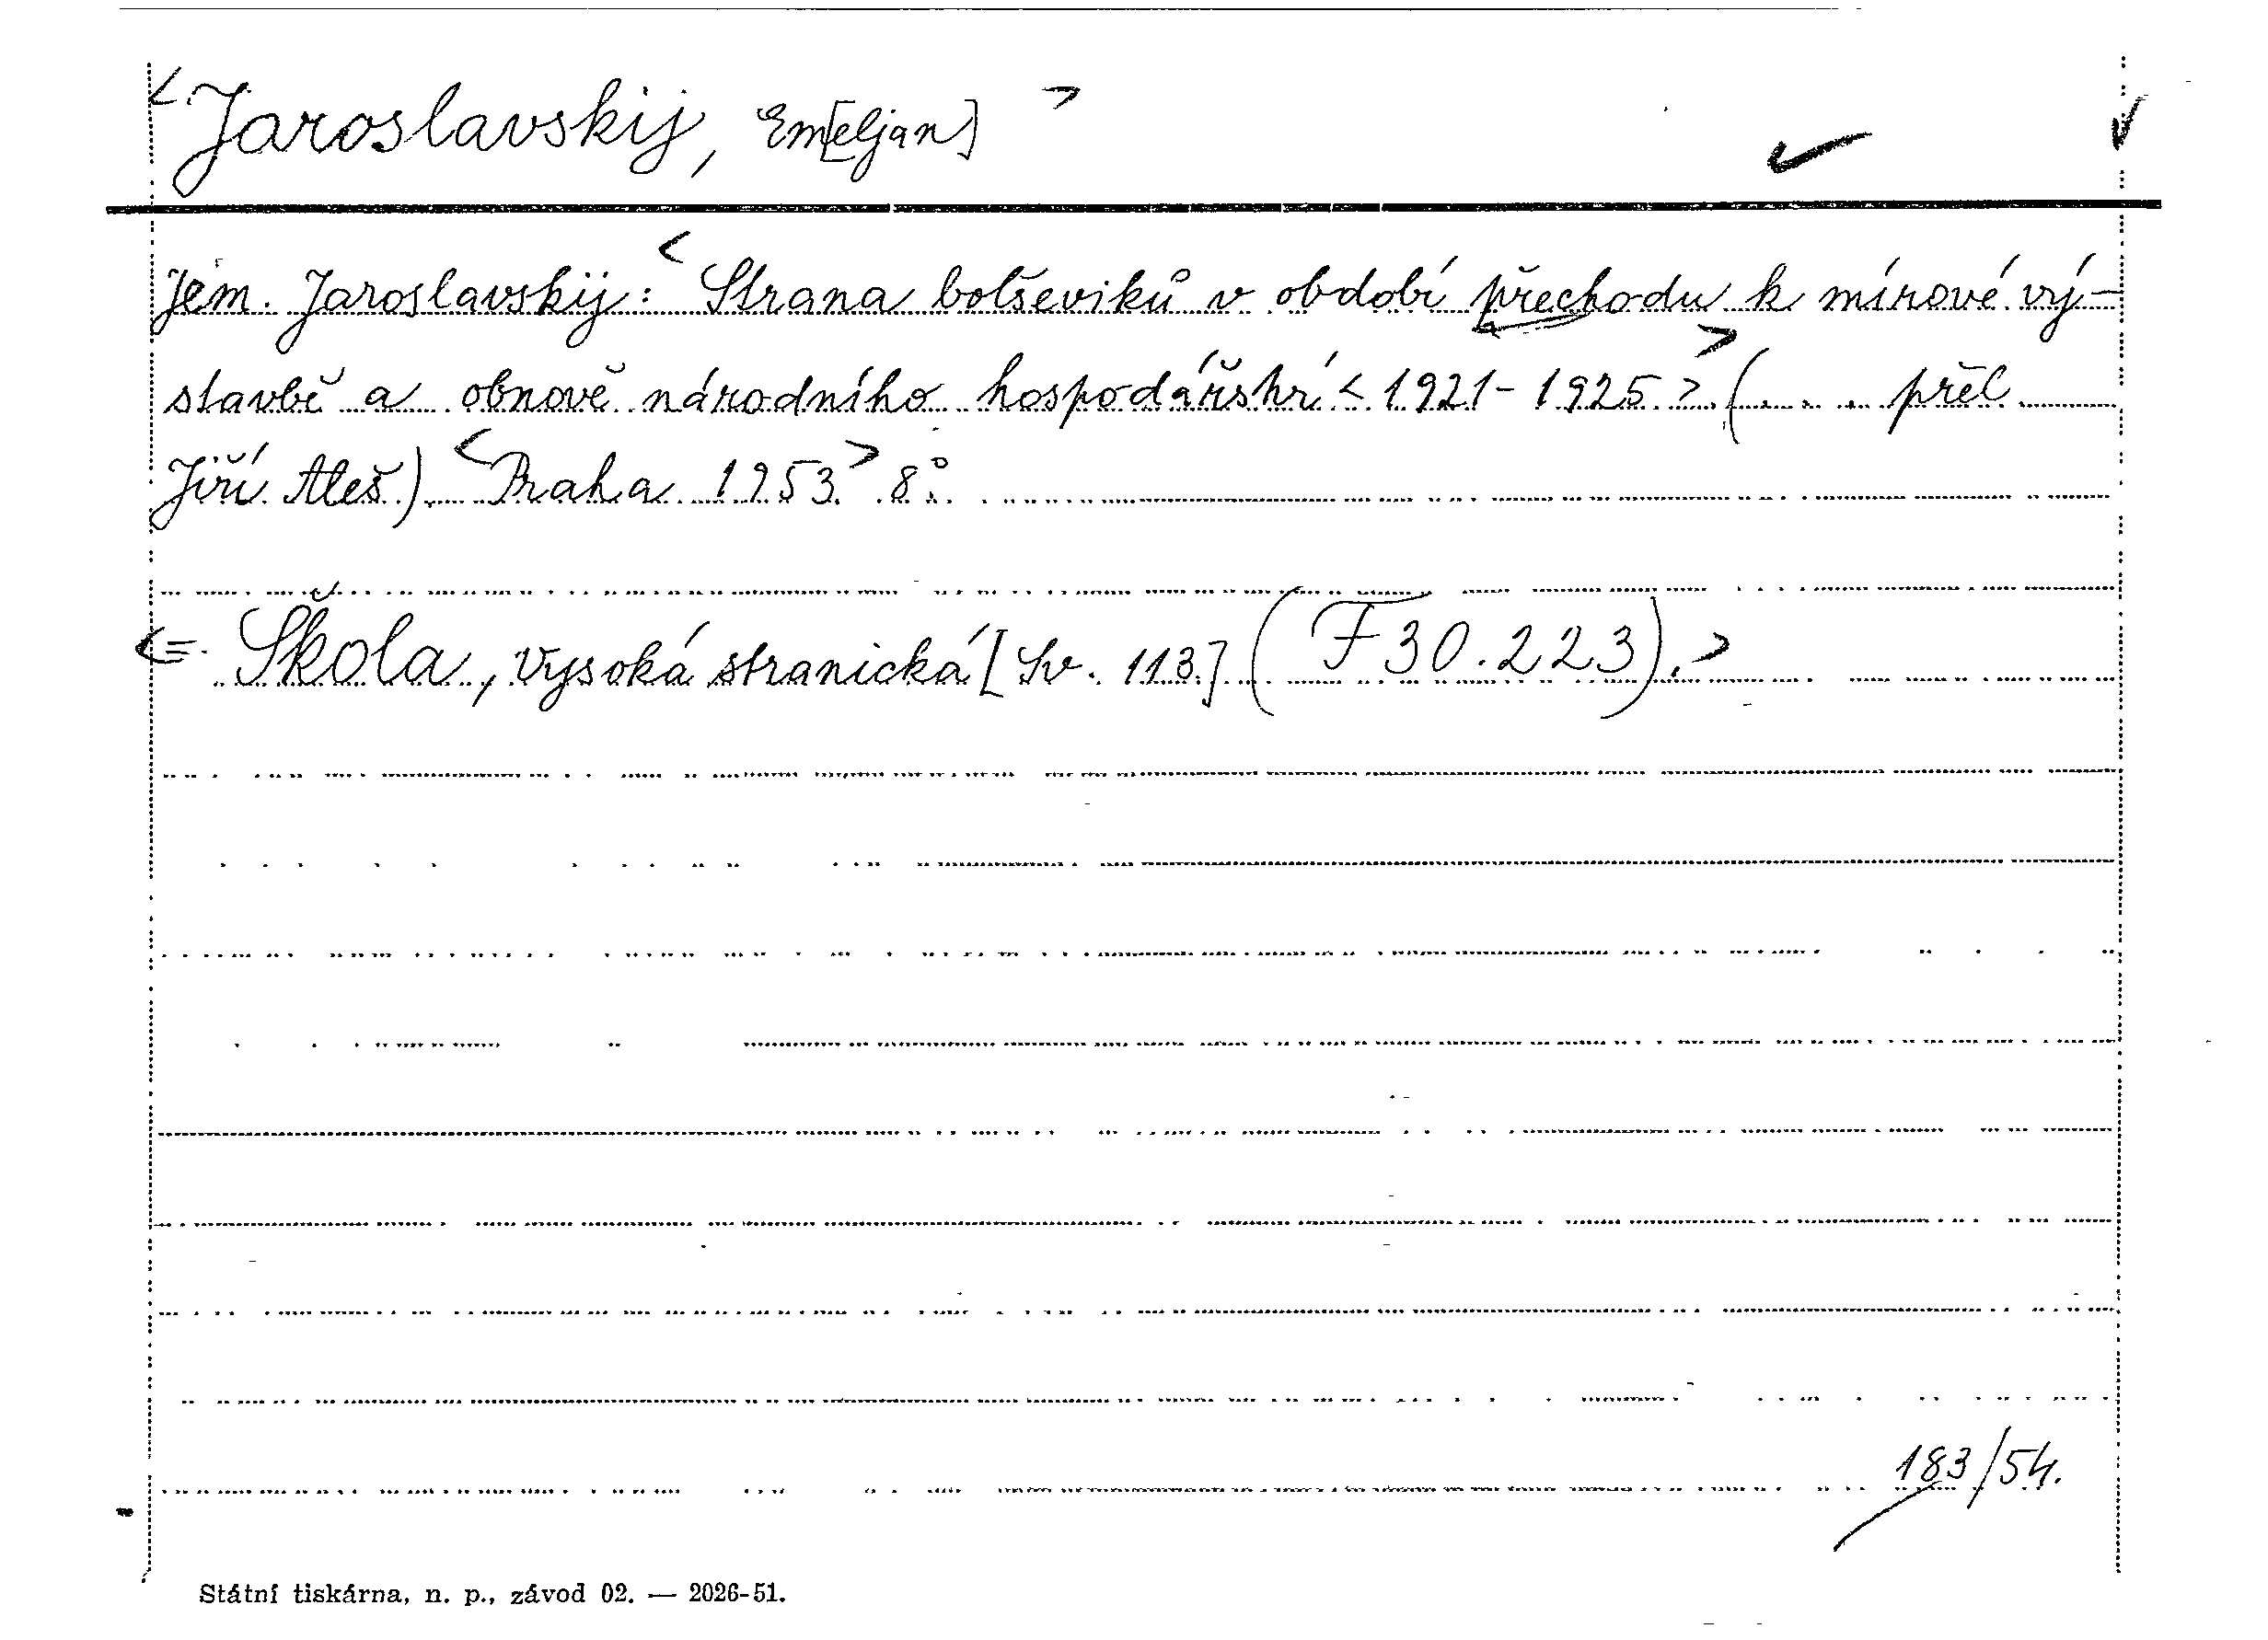 <Jaroslavskij, Em[eljan]>
Jem. Jaroslavskij: <Strana bolševiků v období přechodu k mírové vý-
stavbě a obnově národního hospodářství <1921-1925>> (... přel.
Jiří Aleš). <Praha 1953.> 8°.
<= Škola, vysoká stranická [Sv. 113.] (F 30.223).>
183/54.
Státní tiskárna, n. p., závod 02. — 2026-51.